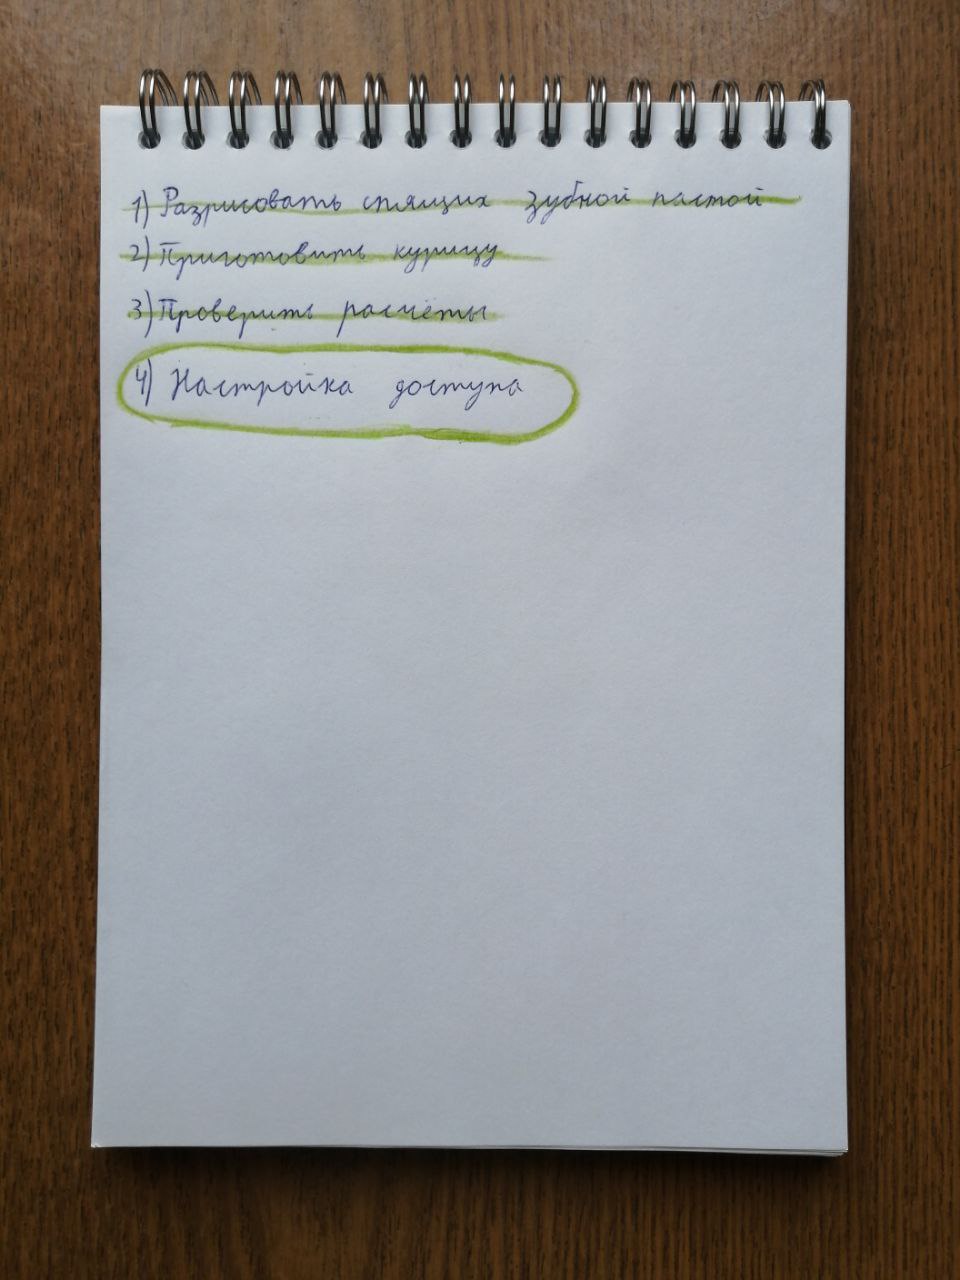 1) Разрисовать спящих зубной пастой
2) Приготовить курицу
3) Проверить расчёты
4) Настройка доступа